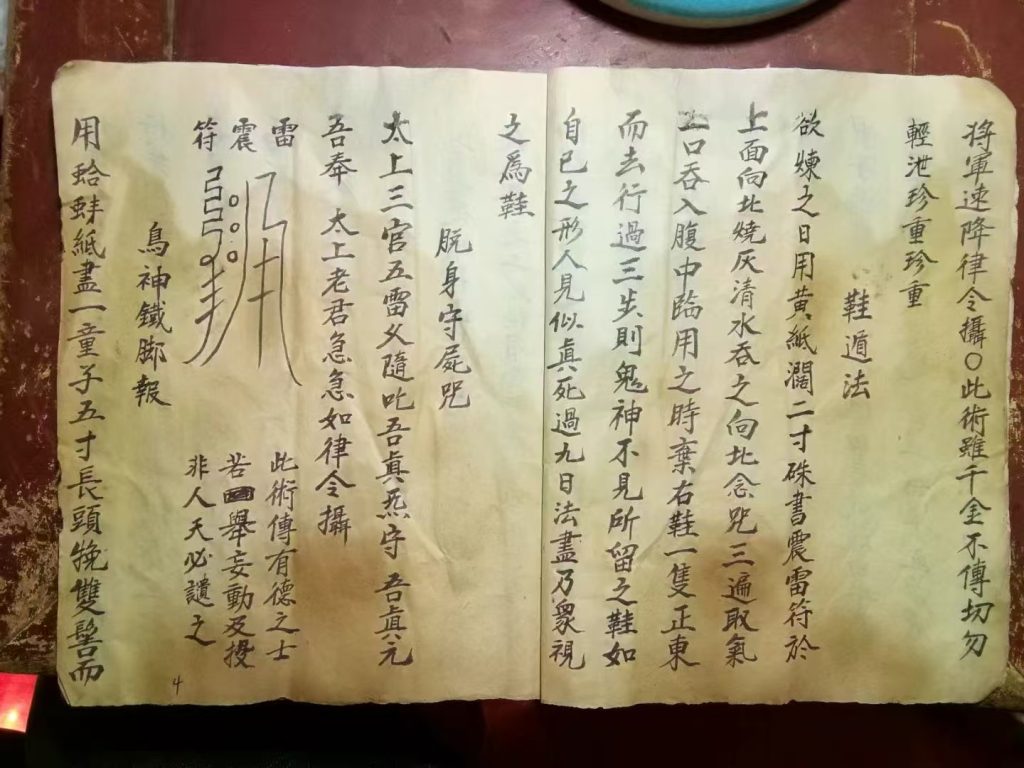 將軍速降律令攝○此術雖千金不傳切勿
輕泄珍重珍重
鞋遁法
欲煉之日用黃紙濶二寸硃書震雷符於
上面向北燒灰清水吞之向北念咒三遍取氣
口吞入腹中臨用之時棄右鞋一隻正東
而去行過三步則鬼神不見所留之鞋如
自己之形人見似眞死過九日法盡乃衆視
之為鞋
脫身守屍咒
太上三官五雷父隨吒吾眞炁守吾眞元
吾奉 太上老君急急如律令攝
雷
震
符
此術傳有德之士
若舉妄動及授
非人天必譴之
鳥神鐵脚報
用蛤蚌紙畫一童子五寸長頭挽雙髻而
4